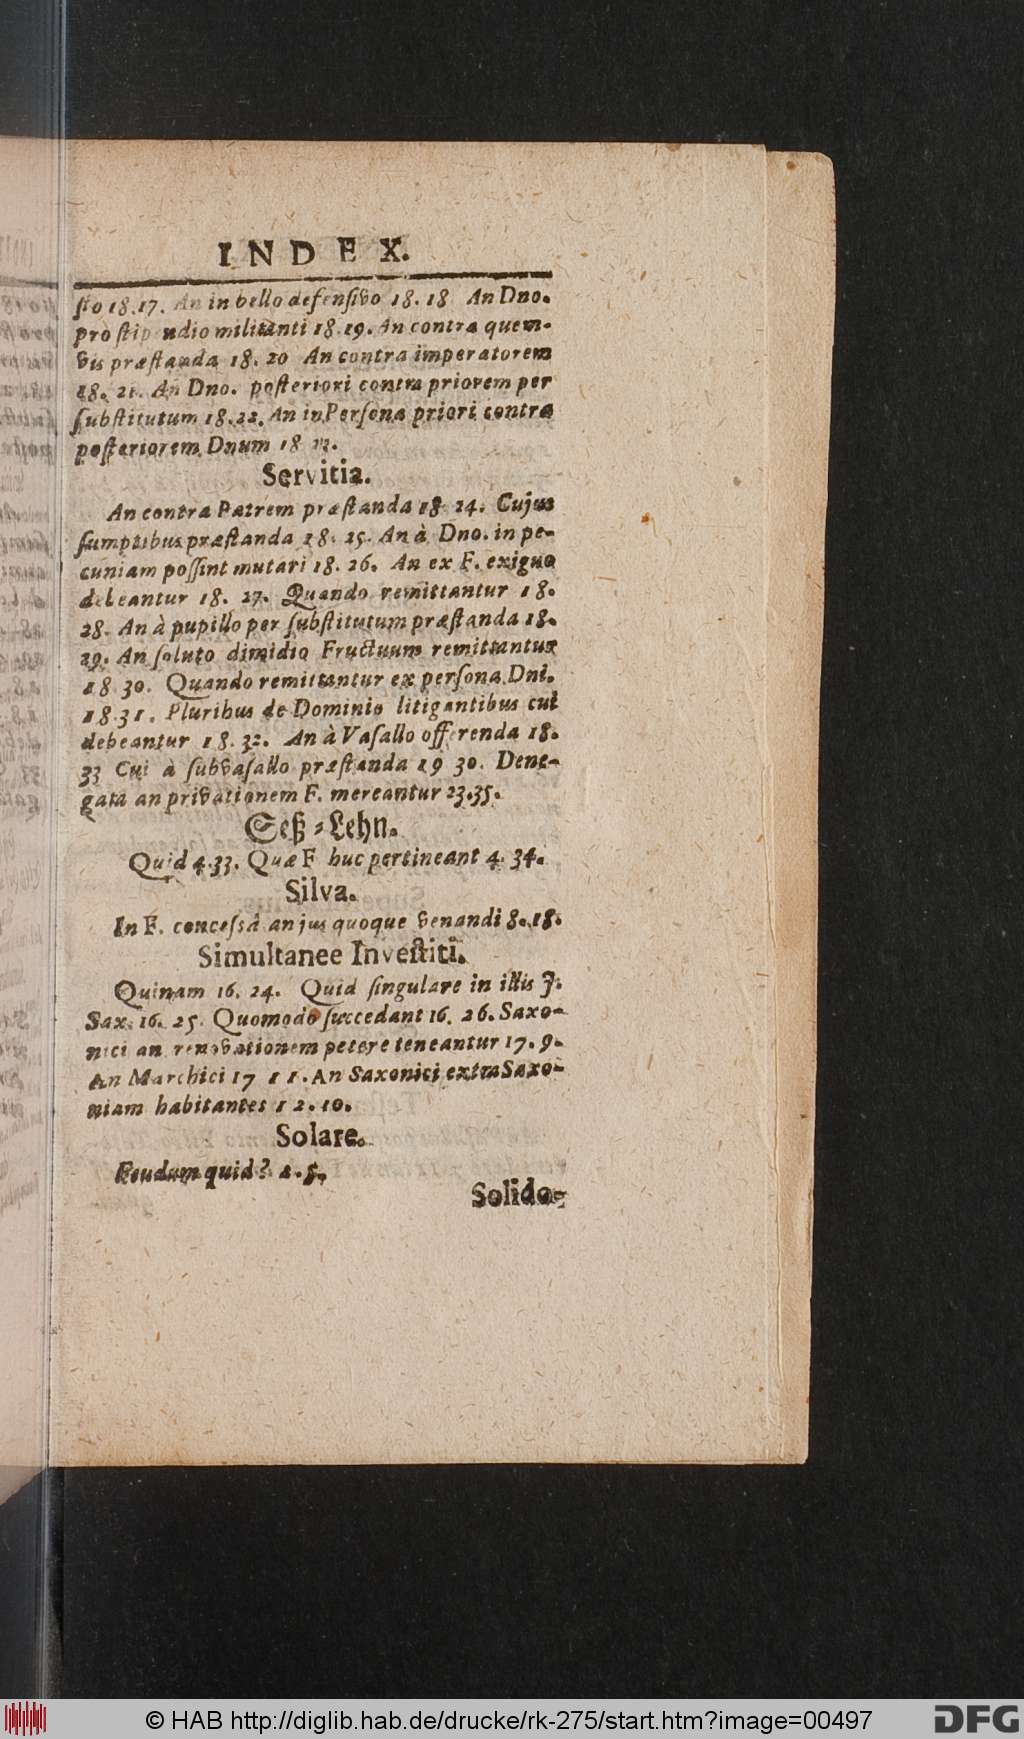 INDEX.
ſio 18.17. An in bello defenſivo 18. 18 An Dno.
pro ſtipendio militanti 18.19. An contra quem-
vis præſtanda 18. 20 An contra imperatorem
18. 21. An Dno. poſteriori contra priorem per
ſubſtitutum 18.22. An in Perſona priori contra
poſteriorem Dnum 18
Servitia.
An contra Patrem præſtanda 18. 24. Cujus
ſumptibus præſtanda 18. 25. An à Dno. in pe-
cuniam poſſint mutari 18. 26. An ex F. exiguo
debeantur 18. 27. Quando remittantur 18.
28. An à pupillo per ſubſtitutum præſtanda 18.
29. An ſoluto dimidio Fructuum remittantur
18 30. Quando remittantur ex perſona Dni.
18.31. Pluribus de Dominio litigantibus cui
debeantur 18. 32. An à Vaſallo offerenda 18.
33 Cui à ſubvaſallo præſtanda 19 30. Dene-
gata an privationem F. mereantur 23.35.
Seß-Lehn.
Quid 4.33. Quæ F huc pertineant 4. 34.
Silva.
In F. conceſsâ an jus quoque venandi 8. 18.
Simultanee Inveſtiti.
Quinam 16. 24. Quid ſingulare in illis J.
Sax. 16. 25. Quomodo ſuccedant 16. 26. Saxo-
nici an renovationem petere teneantur 17. 9.
An Marchici 17 11. An Saxonici extra Saxo-
niam habitantes 12. 10.
Solare.
Feudum quid? 2. 5.
Solido-
© HAB http://diglib.hab.de/drucke/rk-275/start.htm?image=00497
DFG